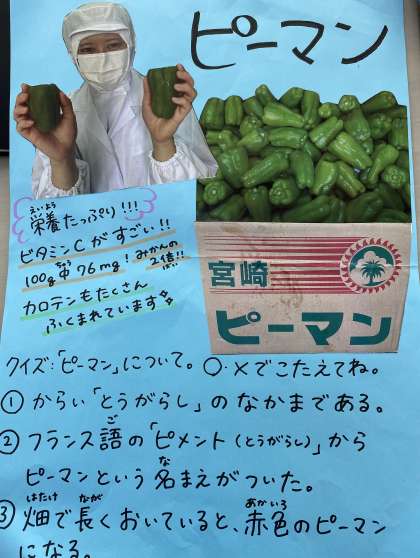 ピーマン
栄養たっぷり!!!
えいよう
ビタミンCがすごい!!
100g中76mg! みかんの2倍!!
ちゅう
ばい
カロテンもたくさん
ふくまれています
宮崎
ピーマン
クイズ:「ピーマン」について。〇・×でこたえてね。
① からい「とうがらし」のなかまである。
② フランス語の「ピメント(とうがらし)」から
ご
ピーマンという名まえがついた。
な
③ 畑で長くおいていると、赤色のピーマン
はたけ なが あかいろ
になる。